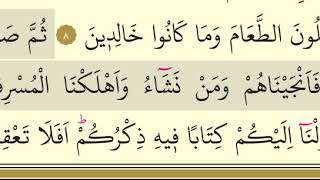 لُونَ الطَّعَامَ وَمَا كَانُوا خَالِدٖينَ ٨ ثُمَّ صَ
فَاَنْجَيْنَاهُمْ وَمَنْ نَشَٓاءُ وَاَهْلَكْنَا الْمُسْرِفٖ
لْنَٓا اِلَيْكُمْ كِتَابًا فٖيهِ ذِكْرُكُمْۜ اَفَلَا تَعْقِ